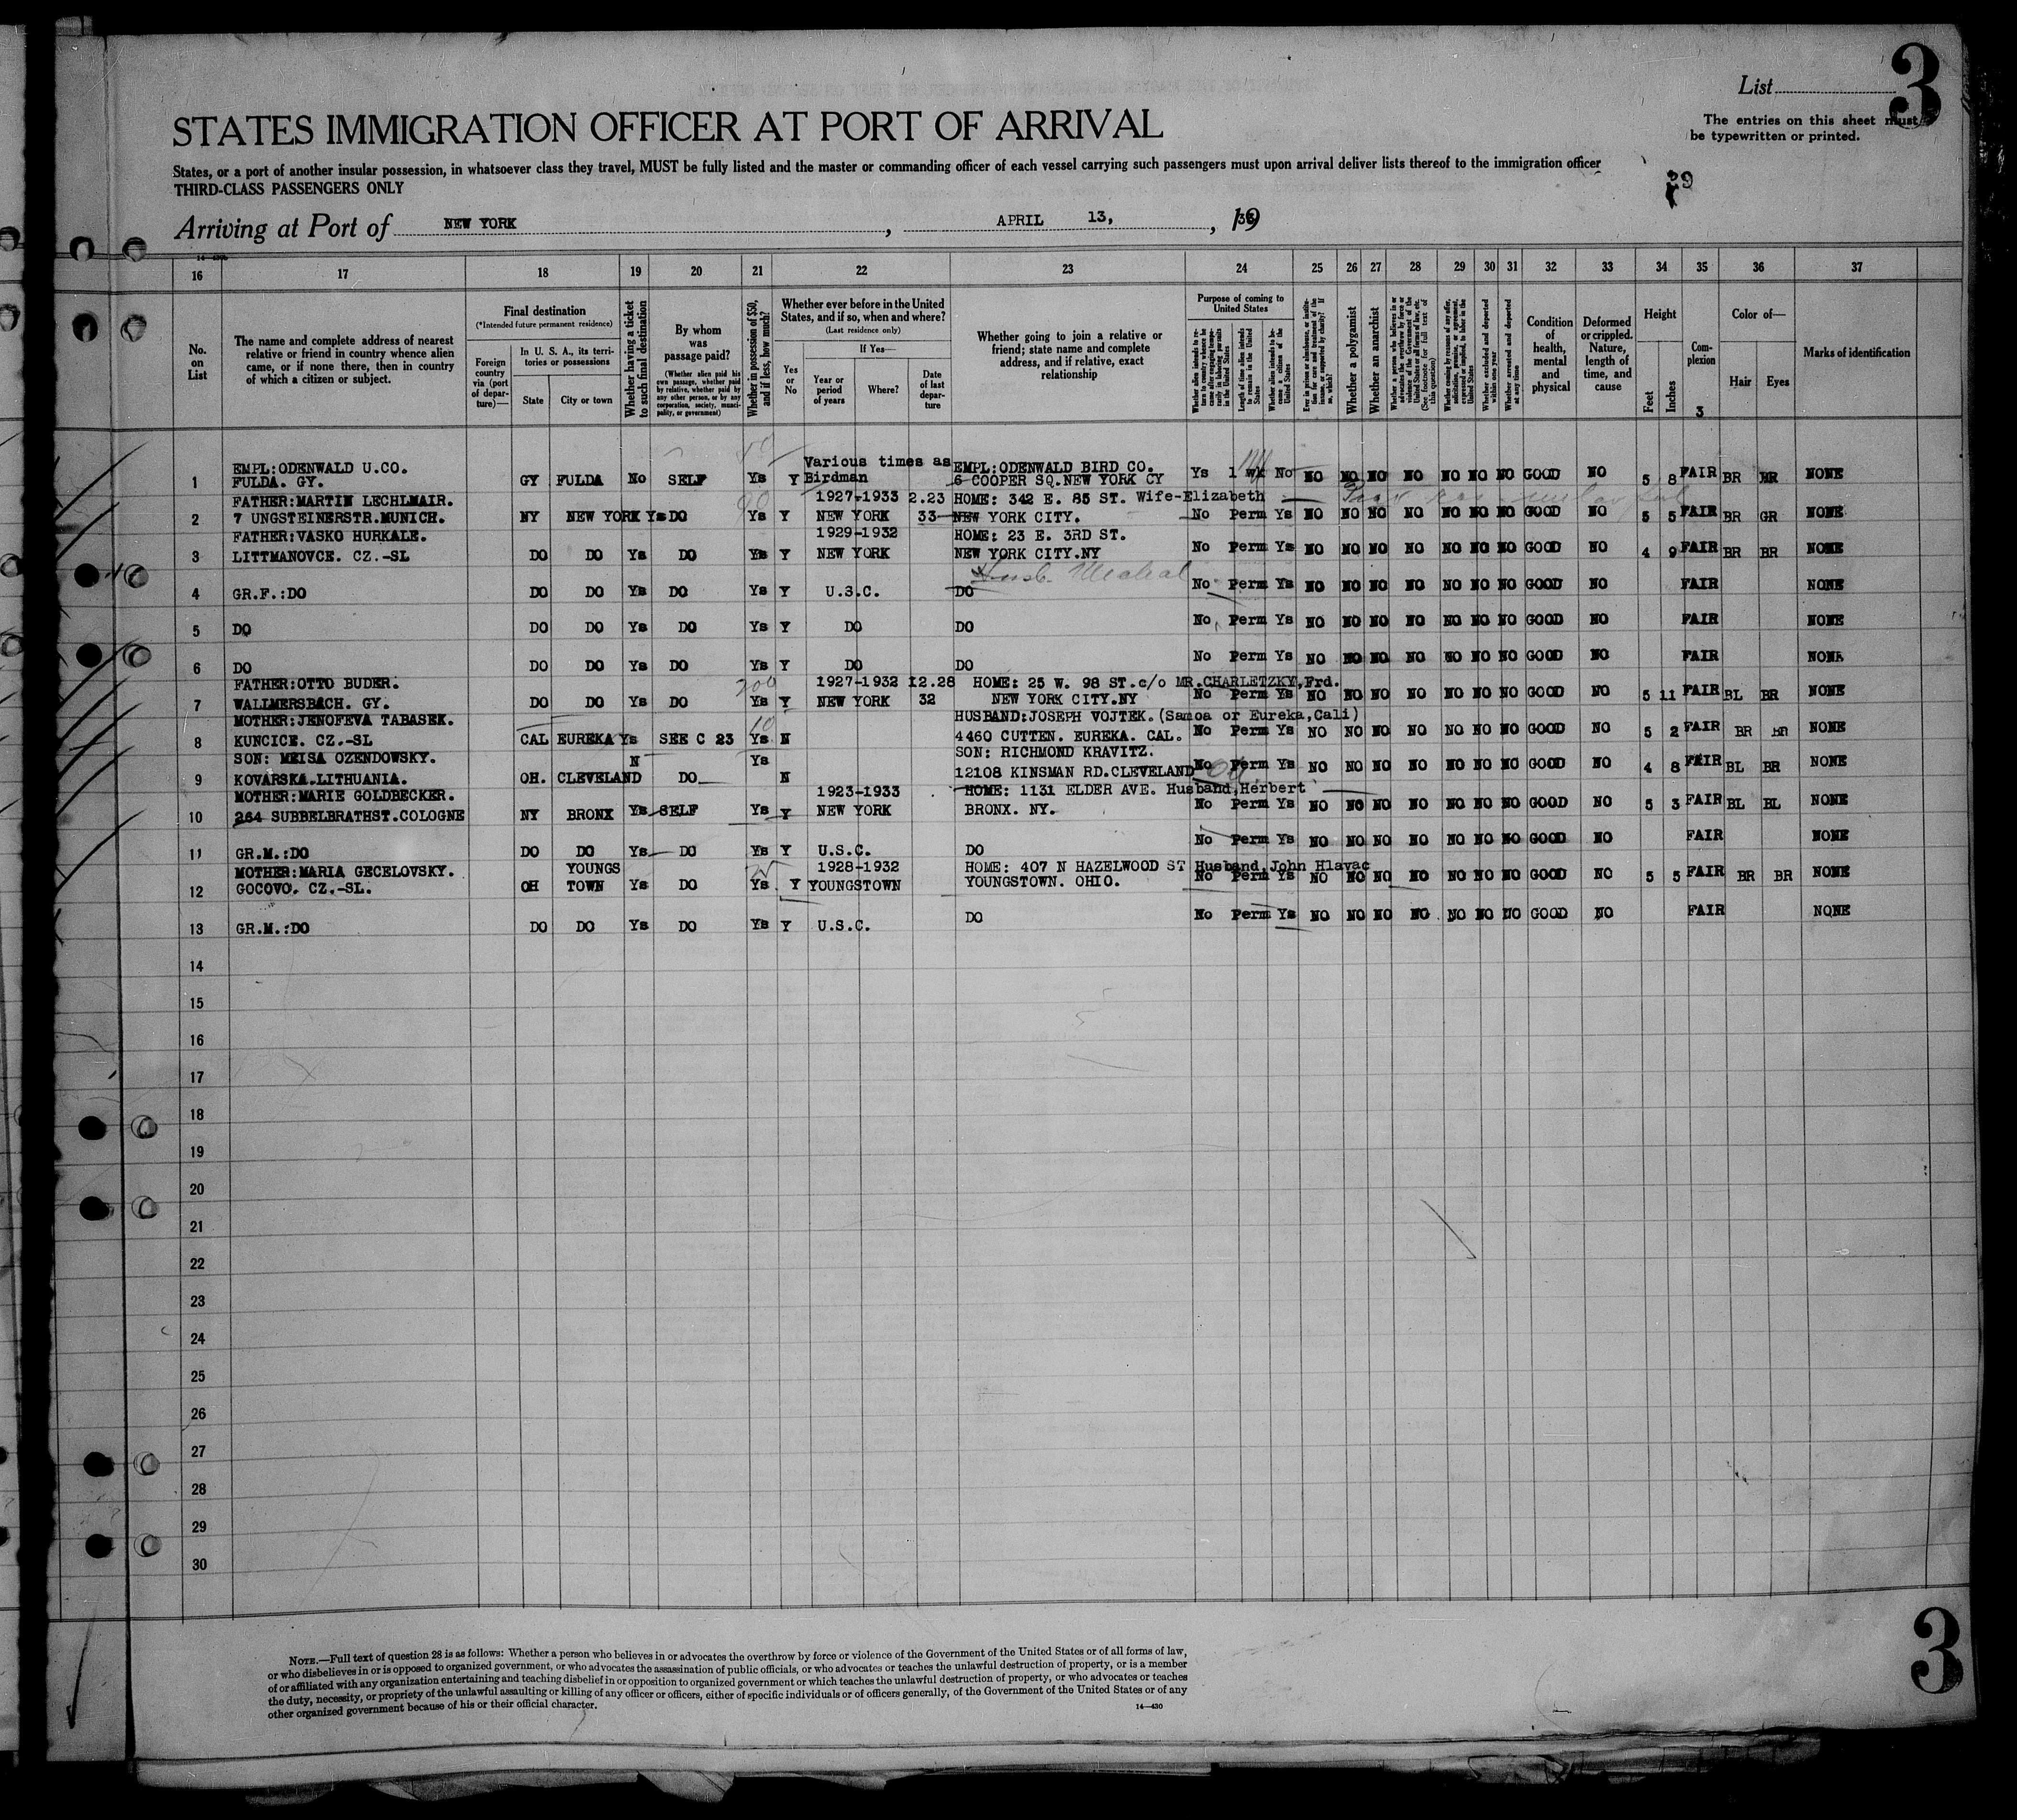 List 3
The entries on this sheet must
be typewritten or printed.
STATES IMMIGRATION OFFICER AT PORT OF ARRIVAL
States, or a port of another insular possession, in whatsoever class they travel, MUST be fully listed and the master or commanding officer of each vessel carrying such passengers must upon arrival deliver lists thereof to the immigration officer
THIRD-CLASS PASSENGERS ONLY
Arriving at Port of NEW YORK, APRIL 13, 1933
16 17 18 19 20 21 22 23 24 25 26 27 28 29 30 31 32 33 34 35 36 37
No. on List
The name and complete address of nearest relative or friend in country whence alien came, or if none there, then in country of which a citizen or subject.
Final destination
(*Intended future permanent residence)
Foreign country via (port of departure)—
In U. S. A., its territories or possessions
State
City or town
Whether having a ticket to such final destination
By whom was passage paid?
(Whether alien paid his own passage, whether paid by relative, whether paid by any other person, or by any corporation, society, municipality, or government)
Whether in possession of $50, and if less, how much?
Whether ever before in the United States, and if so, when and where?
(Last residence only)
Yes or No
If Yes—
Year or period of years
Where?
Date of last departure
Whether going to join a relative or friend; state name and complete address, and if relative, exact relationship
Purpose of coming to United States
Length of time alien intends to remain in the United States
Whether alien intends to become a citizen of the United States
Whether a polygamist
Whether an anarchist
Whether excluded and deported within one year
Whether arrested and deported at any time
Condition of health, mental and physical
Deformed or crippled. Nature, length of time, and cause
Height
Feet
Inches
Complexion
3
Color of—
Hair
Eyes
Marks of identification
EMPL:ODENWALD U.CO. Various times as EMPL:ODENWALD BIRD CO.
1 FULDA. GY. GY FULDA No SELF Ys Y Birdman 6 COOPER SQ.NEW YORK CY Ys 1 wk No NO NO NO NO NO NO NO GOOD NO 5 8 FAIR BR NONE
FATHER:MARTIN LECHLMAIR. 1927-1933 2.23 HOME: 342 E. 85 ST. Wife-Elizabeth
2 7 UNGSTEINERSTR.MUNICH. NY NEW YORK Ys DO Ys Y NEW YORK 33 NEW YORK CITY. No Perm Ys NO NO NO NO NO NO NO GOOD NO 5 5 FAIR BR GR NONE
FATHER:VASKO HURKALE. 1929-1932 HOME: 23 E. 3RD ST.
3 LITTMANOVCE. CZ.-SL DO DO Ys DO Ys Y NEW YORK NEW YORK CITY.NY No Perm Ys NO NO NO NO NO NO NO GOOD NO 4 9 FAIR BR BR NONE
4 GR.F.:DO DO DO Ys DO Ys Y U.S.C. DO No Perm Ys NO NO NO NO NO NO NO GOOD NO FAIR NONE
5 DO DO DO Ys DO Ys Y DO DO No Perm Ys NO NO NO NO NO NO NO GOOD NO FAIR NONE
6 DO DO DO Ys DO Ys Y DO DO No Perm Ys NO NO NO NO NO NO NO GOOD NO FAIR NONE
FATHER:OTTO BUDER. 200 1927-1932 12.28 HOME: 25 W. 98 ST.c/o MR.CHARLETZKY,Frd.
7 WALLMERSBACH. GY. DO DO Ys DO Ys Y NEW YORK 32 NEW YORK CITY.NY No Perm Ys NO NO NO NO NO NO NO GOOD NO 5 11 FAIR BL BR NONE
MOTHER:JENOFEVA TABASEK. 10 HUSBAND:JOSEPH VOJTEK.(Samoa or Eureka,Cali)
8 KUNCICE. CZ.-SL CAL EUREKA Ys SEE C 23 Ys N 4460 CUTTEN. EUREKA. CAL. No Perm Ys NO NO NO NO NO NO NO GOOD NO 5 2 FAIR BR BR NONE
SON: MEISA OZENDOWSKY. N Ys SON: RICHMOND KRAVITZ.
9 KOVARSKA.LITHUANIA. OH. CLEVELAND DO N 12108 KINSMAN RD.CLEVELAND No Perm Ys NO NO NO NO NO NO NO GOOD NO 4 8 FAIR BL BR NONE
MOTHER:MARIE GOLDBECKER. 1923-1933 HOME: 1131 ELDER AVE. Husband,Herbert
10 264 SUBBELBRATHST.COLOGNE NY BRONX Ys SELF Ys Y NEW YORK BRONX. NY. No Perm Ys NO NO NO NO NO NO NO GOOD NO 5 3 FAIR BL BL NONE
11 GR.M.:DO DO DO Ys DO Ys Y U.S.C. DO No Perm Ys NO NO NO NO NO NO NO GOOD NO FAIR NONE
MOTHER:MARIA GECELOVSKY. YOUNGS 1928-1932 HOME: 407 N HAZELWOOD ST Husband,John Hlavac
12 GOCOVO. CZ.-SL. OH TOWN Ys DO Ys Y YOUNGSTOWN YOUNGSTOWN. OHIO. No Perm Ys NO NO NO NO NO NO NO GOOD NO 5 5 FAIR BR BR NONE
13 GR.M.:DO DO DO Ys DO Ys Y U.S.C. DO No Perm Ys NO NO NO NO NO NO NO GOOD NO FAIR NONE
14
15
16
17
18
19
20
21
22
23
24
25
26
27
28
29
30
3
NOTE.—Full text of question 28 is as follows: Whether a person who believes in or advocates the overthrow by force or violence of the Government of the United States or of all forms of law,
or who disbelieves in or is opposed to organized government, or who advocates the assassination of public officials, or who advocates or teaches the unlawful destruction of property, or is a member
of or affiliated with any organization entertaining and teaching disbelief in or opposition to organized government or which teaches the unlawful destruction of property, or who advocates or teaches
the duty, necessity, or propriety of the unlawful assaulting or killing of any officer or officers, either of specific individuals or of officers generally, of the Government of the United States or of any
other organized government because of his or their official character.
14—430